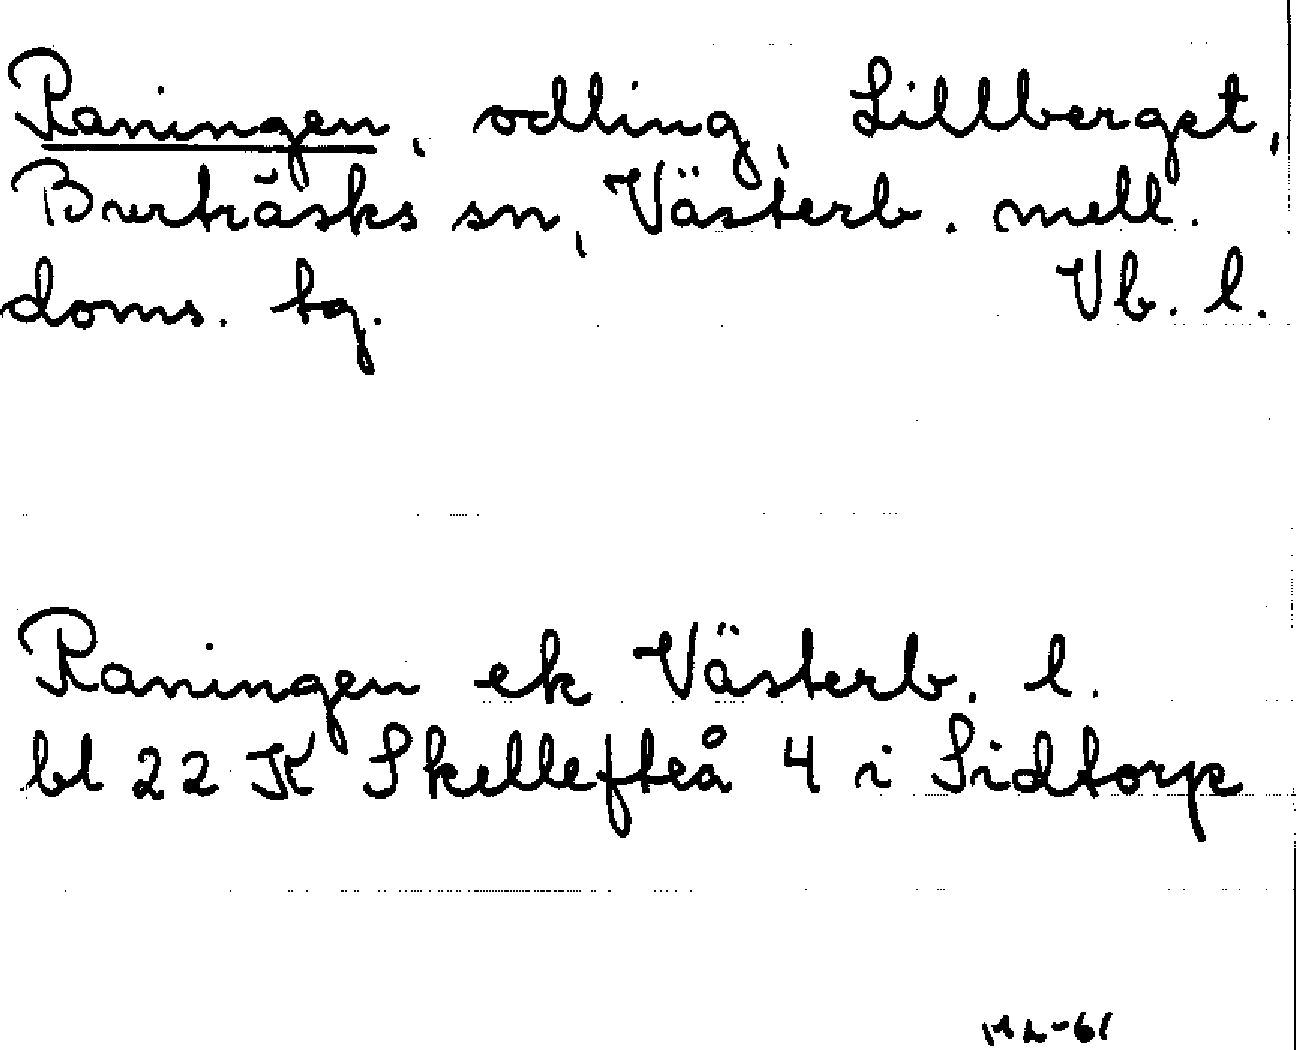 Raningen, odling, Lillberget,
Burträsks sn, Västerb. mell.
doms. tg. Vb. l.
Raningen ek Västerb. l.
bl 22 K Skellefteå 4 i Sidtorp
ML-61